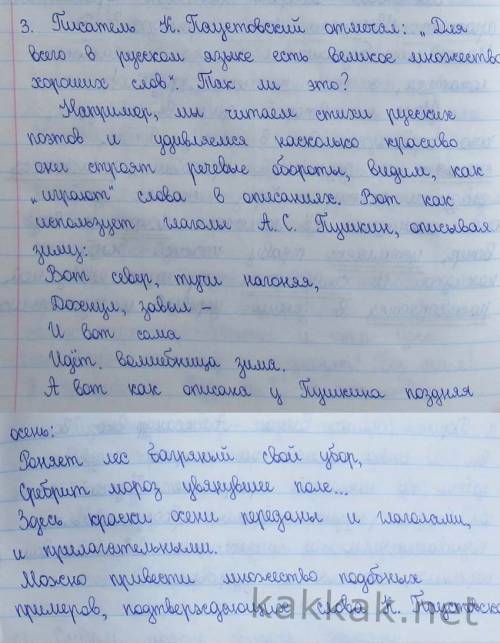 3. Писатель К. Паустовский отмечал: „Для
всего в русском языке есть великое множество
хороших слов“. Так ли это?
Например, мы читаем стихи русских
поэтов и удивляемся насколько красиво
они строят речевые обороты, видим, как
„играют“ слова в описаниях. Вот как
использует глаголы А. С. Пушкин, описывая
зиму:
Вот север, тучи нагоняя,
Дохнул, завыл –
И вот сама
Идёт волшебница зима.
А вот как описана у Пушкина поздняя
осень:
Роняет лес багряный свой убор,
Сребрит мороз увянувшее поле...
Здесь краски осени переданы и глаголами,
и прилагательными.
Можно привести множество подобных
примеров, подтверждающие слова К. Паустовско
kakkak.net